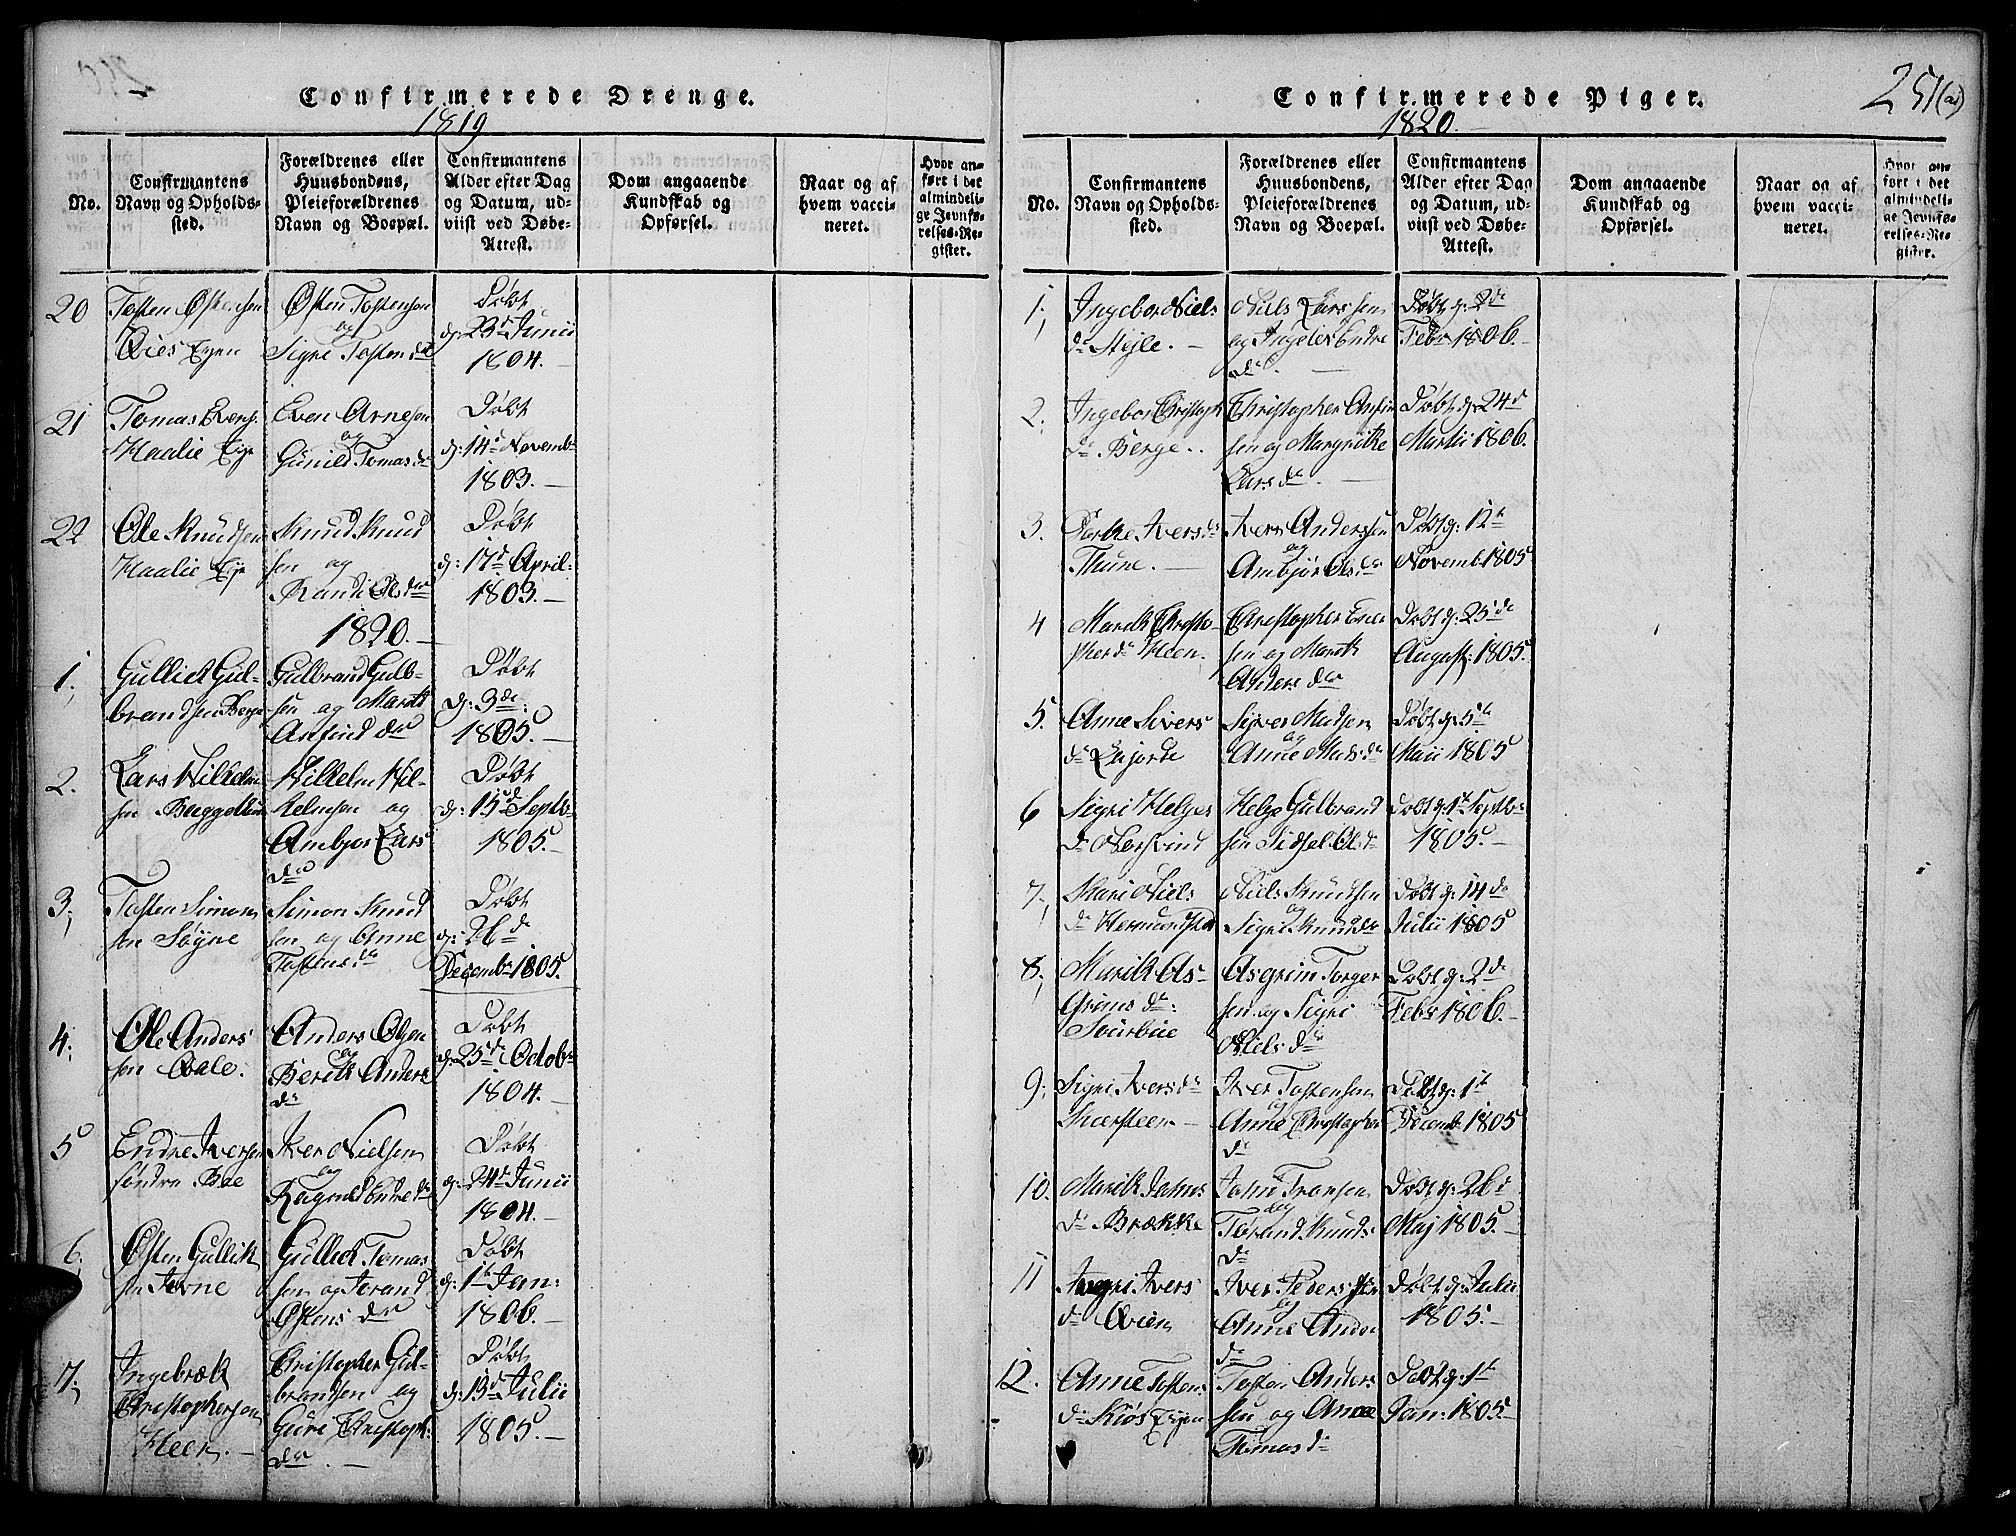 Confirmerede Drenge.
1819
No.
Confirmantens
Navn og Opholds-
sted.
Forældrenes eller
Huusbondens,
Pleieforældrenes
Navn og Boepæl.
Confirmantens
Alder efter Dag
og Datum, ud-
viist ved Døbe-
Attest.
Dom angaaende
Kundskab og
Opførsel.
Naar og af
hvem vacci-
neret.
Hvor an-
ført i det
almindeli-
ge Jevnfø-
relses-Re-
gister.
20
Tosten Østensen
Qvies Eyen
Østen Tostensen
og
Sigre Tostensda
Døbt
d: 23d Junii
1804.
21
Tomas Evens.
Haalie Eye
Even Arnesen
og
Gunild Tomas da
Døbt
d: 14d Novemb
1803.
22
Ole Knudsen
Haalie Eye
Knud Knud
sen og
Randi Olsda
Døbt
d: 17d April
1803.
1820.
1.
Gullick Gul-
brandsen Berge
Gulbrand Gulb-
sen og Marith
Anfind da
Døbt
d: 3de:
1805.
2.
Lars Villelm
sen
Villelm Vil-
helmsen og
Ambjør Lars
da
Døbt
d: 15d Septb
1805.
3.
Tosten Simon
sen Søyne
Simon Knud
sen og Anne
Tostens da
Døbt
d: 26de
Decemb 1805.
4.
Ole Anders
sen Qvale.
Anders Olsen
og
Berith Anders
da
Døbt
d: 25de Octob
1804.
5
Endre Iversen
søndre Bøe
Iver Nielsen
og
Ragnild Endreda
Døbt
d: 24d Junii
1804.
6.
Østen Gullik
sen Tovne
Gullick Tomas
sen og Jorand
Østens da
Døbt
d: 1t Jan:
1806.
7.
Ingebræk
Christophersen
Heen.
Christopher Gul-
brandsen og
Guri Christoph.
da
Døbt
d: 13d Julii
1805.
Confirmerede Piger.
251(a)
1820.
No.
Confirmantens
Navn og Opholds-
sted.
Forældrenes eller
Huusbondens,
Pleieforældrenes
Navn og Boepæl.
Confirmantens
Alder efter Dag
og Datum, ud-
viist ved Døbe-
Attest.
Dom angaaende
Kundskab og
Opførsel.
Naar og af
hvem vacci-
neret.
Hvor an-
ført i det
almindeli-
ge Jevnfø-
relses-Re-
gister.
1.
Ingebor Niels
da Stejle.
Niels Larssen
og Ingeler Endre
da
Døbt d: 2de
Febr 1806.
2.
Ingebor Christoph
da Berge.
Christopher Anfin
sen og Margrethe
Lars da
Døbt d: 24d
Martii 1806.
3.
Dorthe Iversda
Thune.
Iver Anderssen
og
Ambjør Olsda
Døbt d: 12t
Novemb 1805
4
Marith Christo-
pherda Heen.
Christopher Even
sen og Marith
Anders da
Døbt d: 25de
August: 1805.
5.
Anne Sivers
da
Syver Madsen
og
Anne Mads da
Døbt d: 5te
Maii 1805
6
Sigri Helges
da
Helge Gulbrand
sen Sidsel Olsda
Døbt d: 1t Septb
1805.
7.
Mari Niels
da Hermundstad
Niels Knudsen
og
Sigri Knudsda
Døbt d: 14de
Julii 1805
8.
Marith As-
grims da:
Sourbue
Asgrim Torger
sen og Sigri
Nielsda
Døbt d: 2de
Febr 1806.
9.
Sigri Iversda
Skarsteen
Iver Tostensen
og
Anne Christopher
da
Døbt d: 1t
Decemb 1805
10.
Marith Johns
da Brække
John Transen
og
Torand Knuds
da
Døbt d: 26d
Maj 1805.
11
Ingri Ivers
da Qvien
Iver Pedersen
og
Anne Anders
da
Døbt d: Julii
1805.
12.
Anne Tostens
da Kiøs Eyen
Tosten Anders
sen og Anne
Tomas da
Døbt d: 1t
Jan: 1805